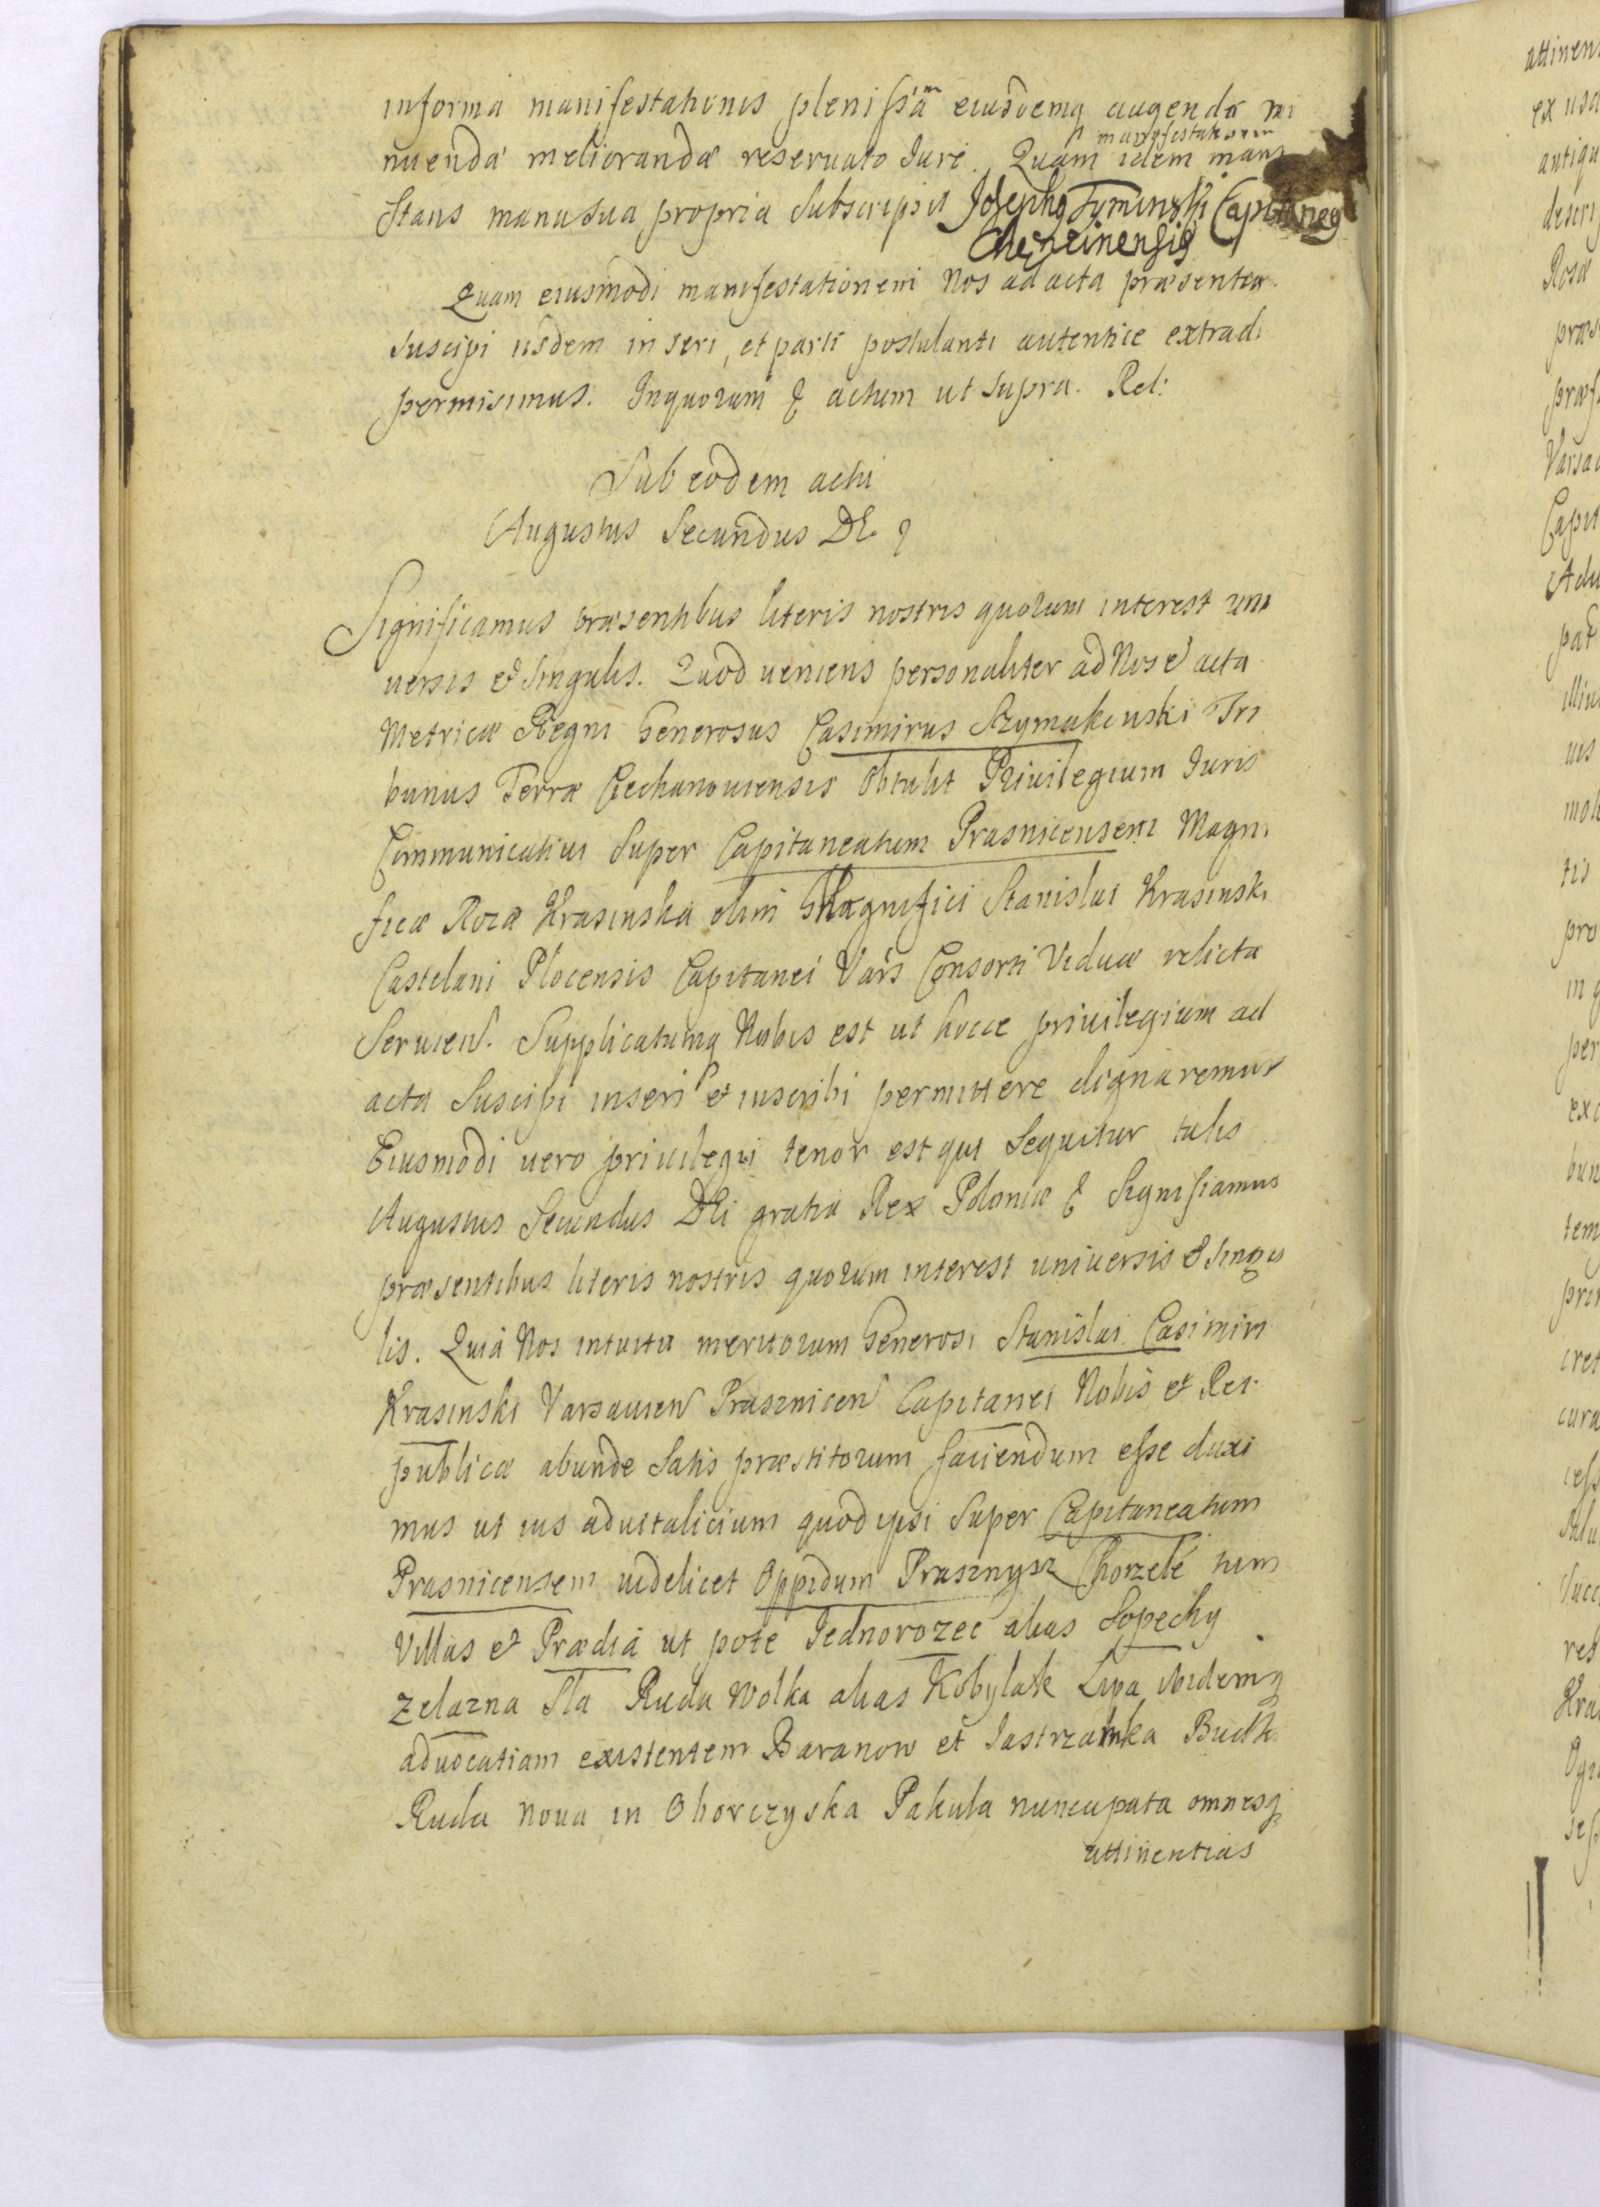 informa manifestationis pleniss̃ãm eiusdemq augendæ mi
nuendæ meliorandæ reseruato Iure. Quam manifestationem idem mani
stans manu sua propria subscripsit Josephq Tyminski Capitaneq
Checinensis
Quam eiusmodi manifestationem Nos ad acta præsentia
suscipi iisdem inseri, et parti postulanti autentice extradi
permisimus. Inquorum & actum ut supra. Rel:
Sub eodem actu
Augustus Secundus DE &
Significamus præsentibus literis nostris quorum interest uni
uersis et singulis. Quod ueniens personaliter ad Nos et acta
Metricæ Regni Generosus Casimirus Szymakowski Tri
bunus Terræ Ciechanouiensis obtulit Priuilegium Iuris
Communicatiui super Capitaneatum Prasnicensem Magni
ficæ Rozæ Krasinska olim Magnifici Stanislai Krasinski
Castelani Plocensis Capitanei Vars Consorti Viduæ relicta
seruien. Supplicatumq Nobis est ut hocce priuilegium ad
acta suscipi inseri et inscribi permittere dignaremur
Eiusmodi uero priuilegii tenor est qui sequitur talis
Augustus Secundus DEi gratia Rex Poloniæ & Significamus
præsentibus literis nostris quorum interest uniuersis et singu
lis. Quia Nos intuitu meritorum Generosi Stanislai Casimiri
Krasinski Varsauien Prasznicen Capitanei Nobis et Rei
publicæ abunde satis præstitorum faciendum esse duxi
mus ut ius aduitalicium quod ipsi super Capitaneatum
Prasnicensem uidelicet Oppidum Prasznysz Chorzele tum
Villas et Prædia ut pote Jednorozec alias Łopechy
Zelazna Sta Ruda Wolka alias Kobylak Lipa ibidemq
aduocatiam existentem Baranow et Jastrzamka Budk
Ruda noua in Ohorczyska Pakula nuncupata omnesq
attinentias
attinen
ex usu
antiqu
descri
Rosæ
præs
præf
Varsau
Capit
Adu
illiu
uis
mol
tis
pro
in
per
exc
bun
tem
pri
cret
cura
cess
succ
reb
Kra